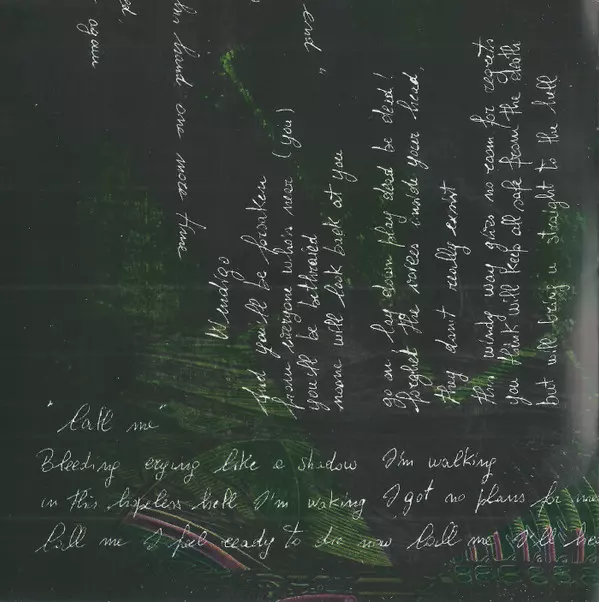 again
hand one more time
end "
Wendigo
And you'll be forsaken
from everyone who's near (you)
you'll be bethraied
none will look back at you
go on lay down play dead be dead!
forghet the voices inside your head,
they don't really exist
this windy way gives no room for regrets
you think will keep all safe from the death
but will bring u straight to the hell
"Call me"
Bleeding crying like a shadow I'm walking
in this hopeless hell I'm waking I got no plans for me
Call me I feel ready to die now Call me I'll